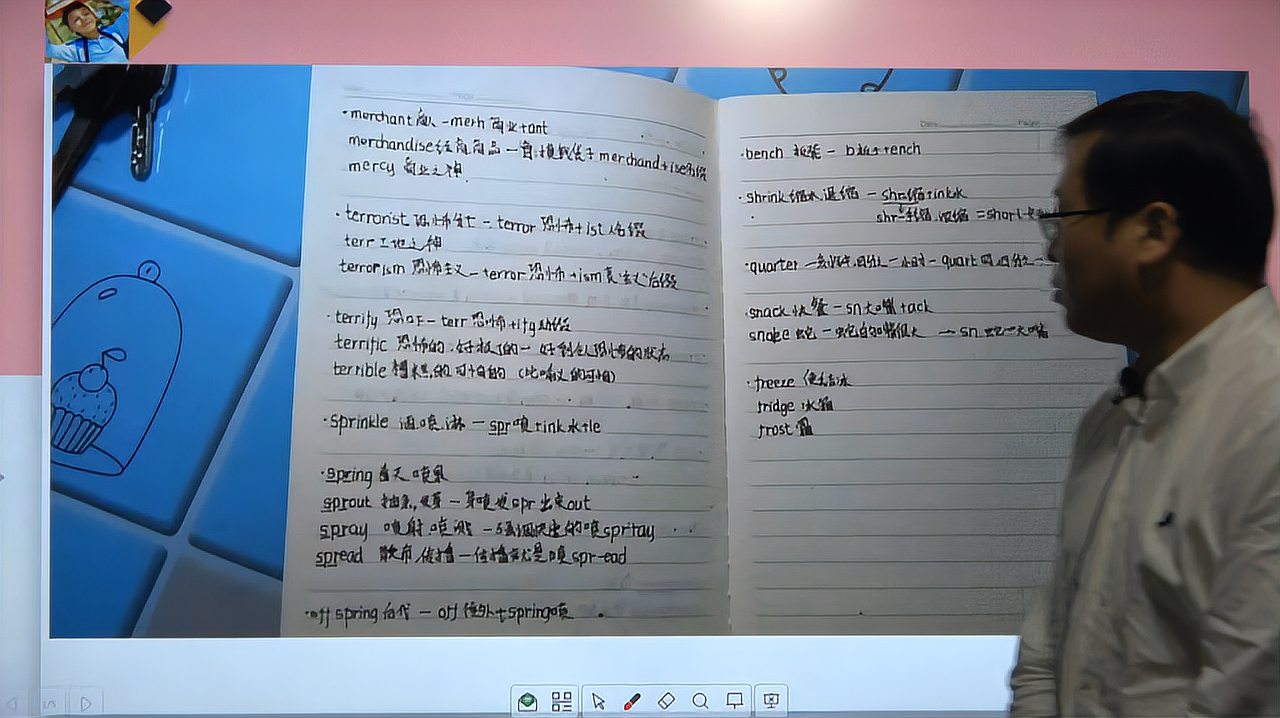 ·merchant 商人 -merh 商业+ant
merchandise 经商商品 - merchand+ise
mercy 商业之神
·terrorist 恐怖分子 - terror 恐怖+ist 人名缀
terr 工地之神
terrorism 恐怖主义 - terror 恐怖+ism 后缀
·terrify 恐吓 - terr 恐怖+ify 动缀
terrific 恐怖的,好极了的 - 好到令人恐怖的状态
terrible 糟糕的 可怕的
·sprinkle 洒,喷淋 - spr喷+ink水+le
·spring 春天 喷泉
sprout 抽条,发芽 - spr 出来out
spray 喷射,喷洒 - 的喷spr+ay
spread 散布,传播 - 传播就是喷spr-ead
·offspring 后代 - off 往外+spring喷
·bench 板凳 - b板子+ench
·shrink 缩水,退缩 - shr缩+ink水
shr- 浓缩 =short
·quarter 四分之一 - quart
·snack 快餐 - sn大嘴+ack
snake 蛇 - 蛇的嘴很大 → sn 蛇-大嘴
·freeze 使结冰
fridge 冰箱
frost 霜